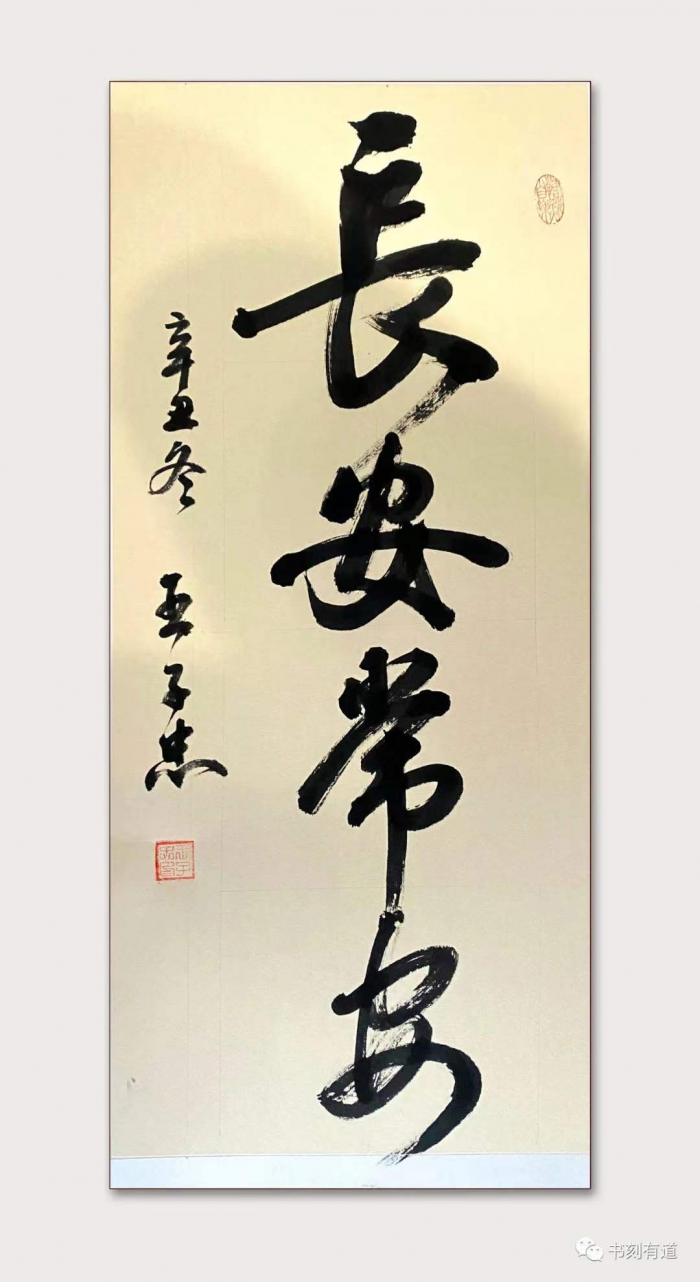 長安常安
辛丑冬 王子忠
书刻有道